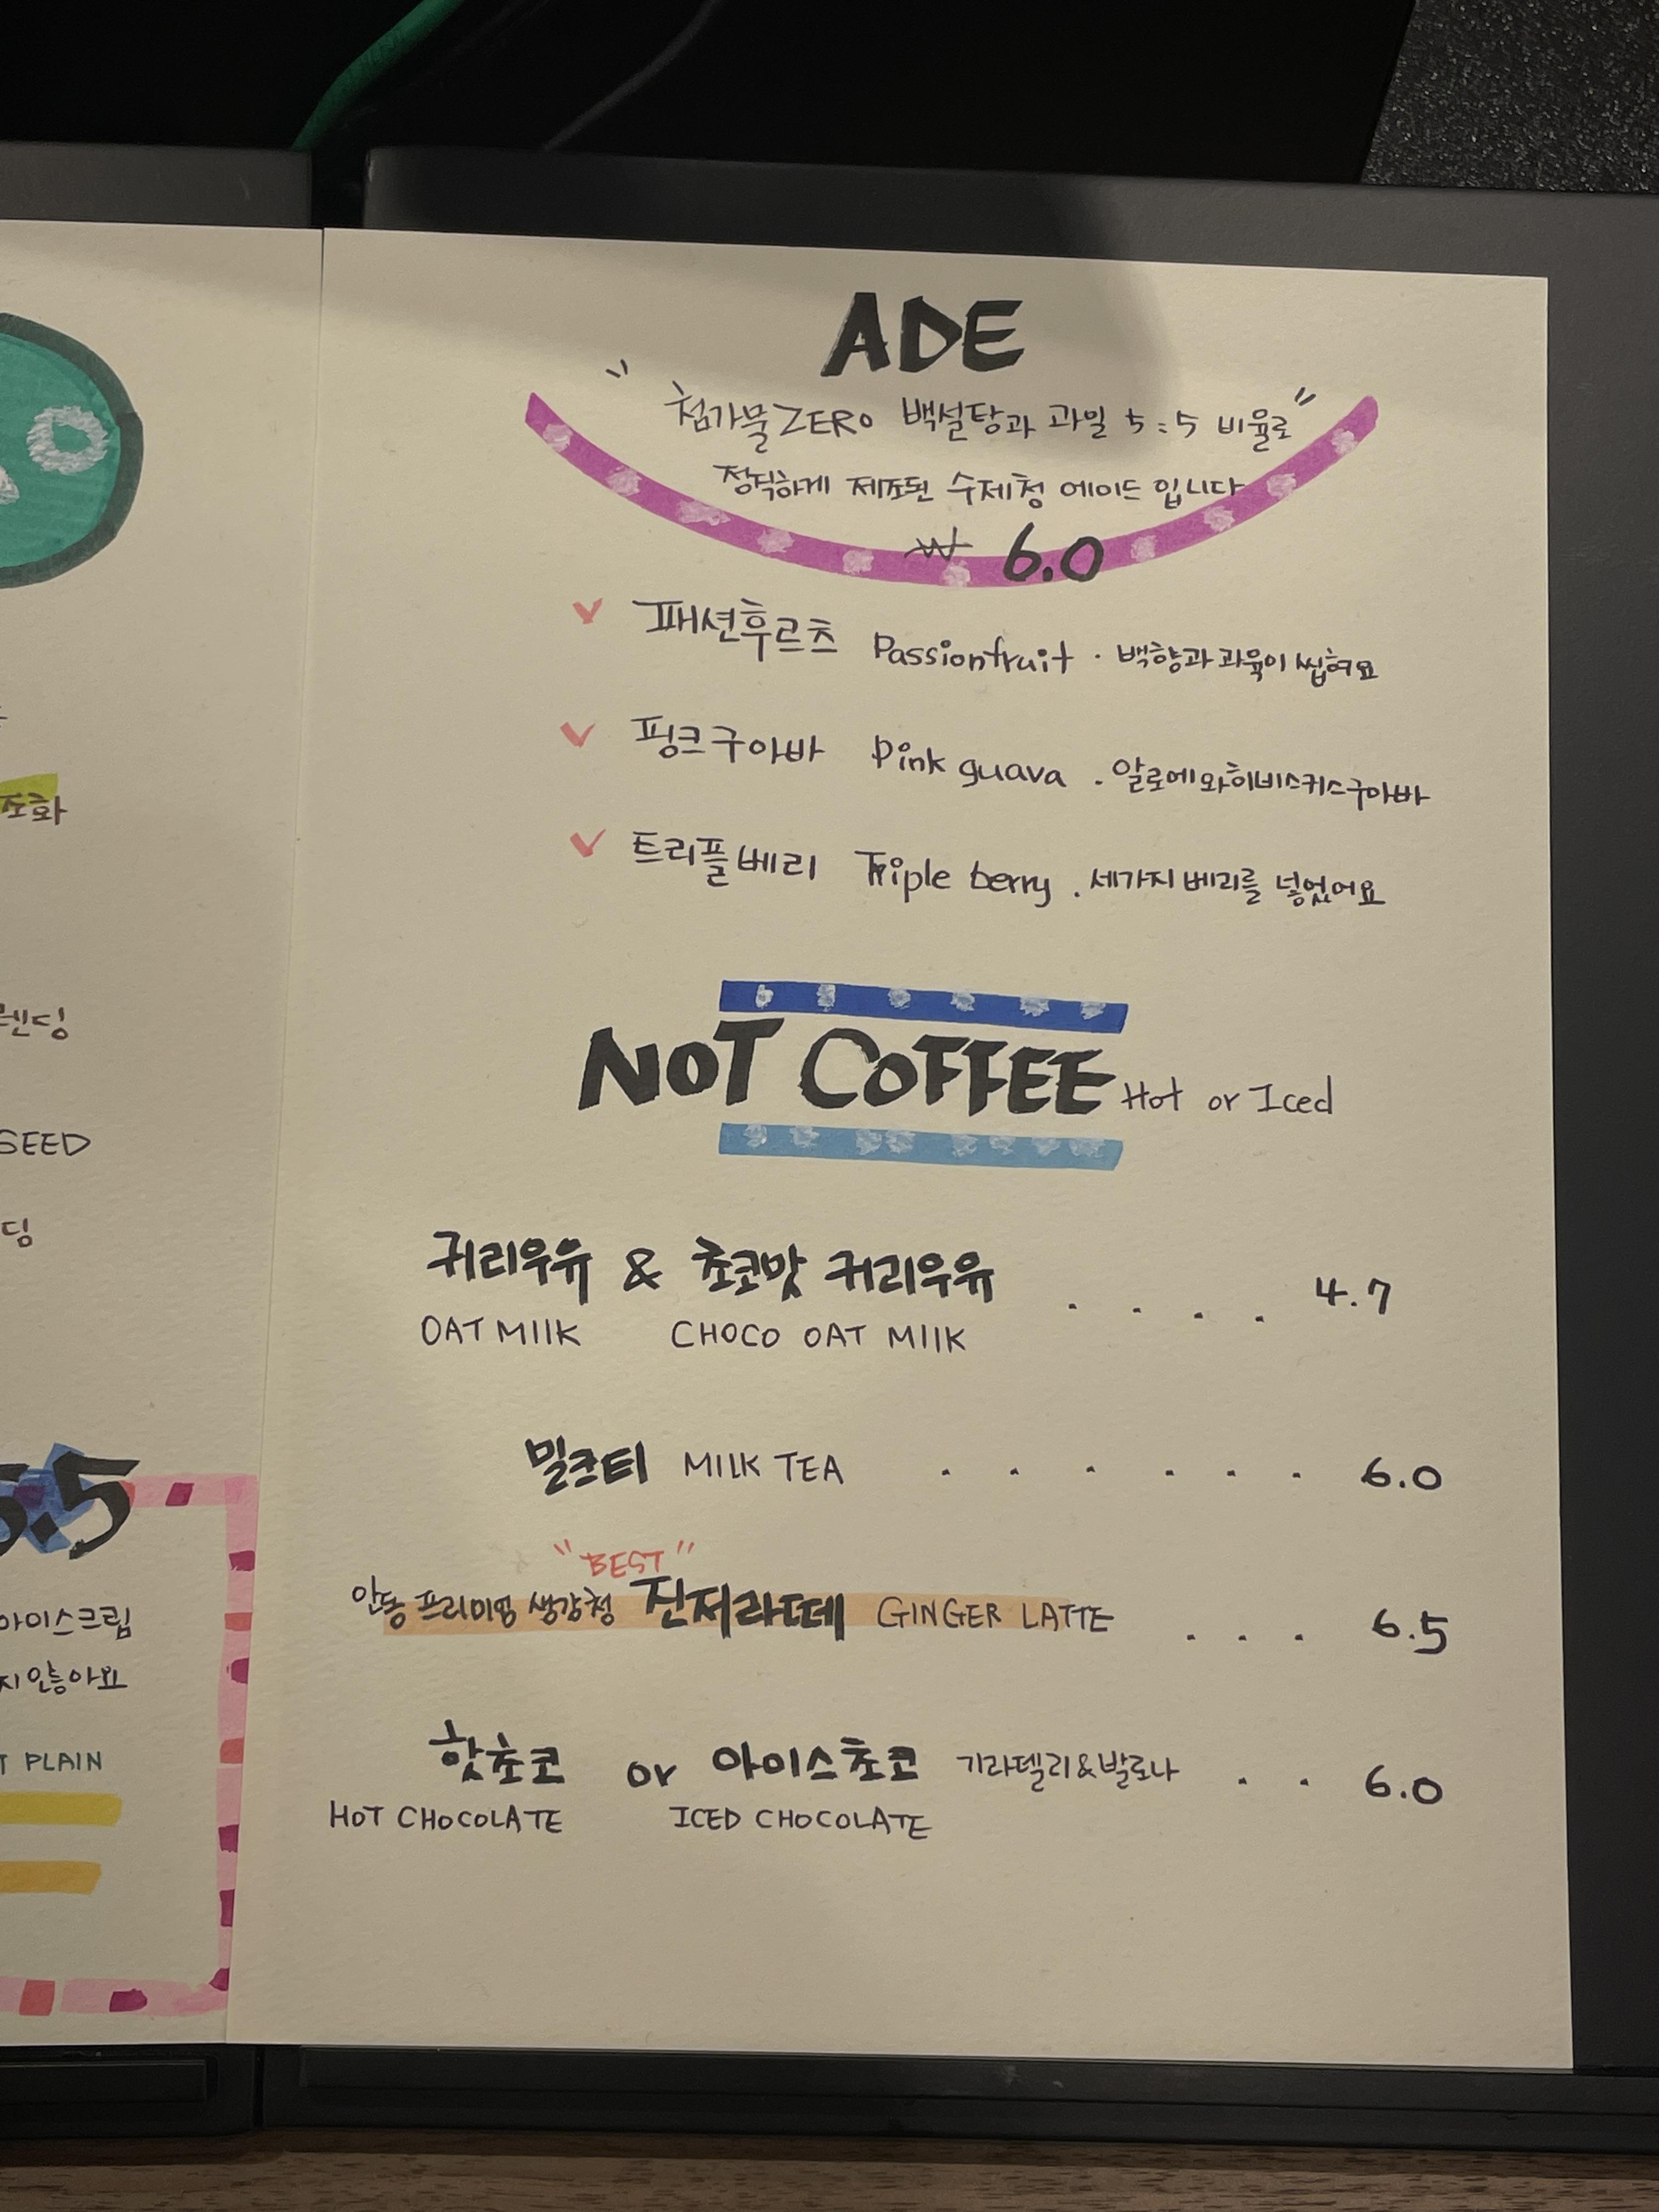 ADE
" 첨가물ZERO 백설탕과 과일 5:5 비율로 "
정직하게 제조된 수제청 에이드 입니다
₩ 6.0
패션후르츠 Passionfruit · 백향과 과육이 씹혀요
핑크구아바 Pink guava . 알로에와히비스커스구아바
트리플베리 Triple berry . 세가지 베리를 넣었어요
NOT COFFEE Hot or Iced
귀리우유 & 초코맛 귀리우유 . . . . 4.7
OAT MIlK CHOCO OAT MIlK
밀크티 MILK TEA . . . . . . 6.0
"BEST"
안동 프리미엄 생강청 진저라떼 GINGER LATTE . . . 6.5
핫초코 or 아이스초코 기라델리&발로나 . . 6.0
HOT CHOCOLATE ICED CHOCOLATE
소화
렌딩
SEED
딩
5.5
아이스크림
지 않아요
PLAIN